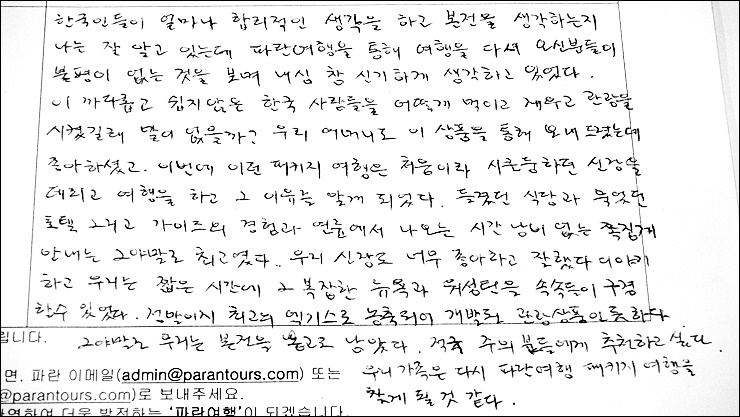 한국인들이 얼마나 합리적인 생각을 하고 본전을 생각하는지
나는 잘 알고 있는데 파란여행을 통해 여행을 다녀 오신분들이
불평이 없는 것을 보며 내심 참 신기하게 생각하고 있었다.
이 까다롭고 쉽지않은 한국 사람들을 어떻게 먹이고 재우고 관람을
시켰길래 말이 없을까? 우리 어머니도 이 상품을 통해 보내 드렸는데
좋아하셨고. 이번에 이런 패키지 여행은 처음이라 시큰둥하던 신랑을
데리고 여행을 하고 그 이유를 알게 되었다. 들렸던 식당과 묵었던
호텔 그리고 가이드의 경험과 연륜에서 나오는 시간 낭비 없는 족집게
안내는 그야말로 최고였다. 우리 신랑도 너무 좋아라고 잘했다 이야기
하고 우리는 짧은 시간에 그 복잡한 뉴욕과 워싱턴을 속속들이 구경
할수 있었다. 정말이지 최고의 엑기스로 농축되어 개발된 관광상품인듯하다
그야말로 우리는 본전을 뽑고도 남았다. 주의 분들에게 추천하고 싶다.
우리 가족은 다시 파란여행 패키지 여행을
찾게 될 것 같다.
립니다.
면. 파란 이메일(admin@parantours.com) 또는
@parantours.com)로 보내주세요.
영하여 더욱 발전하는 '파란여행'이 되겠습니다